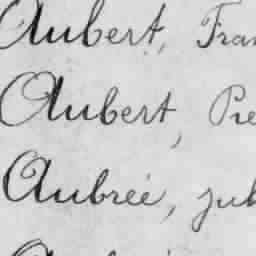 Aubert, Fran
Aubert, Pre
Aubrée, jul